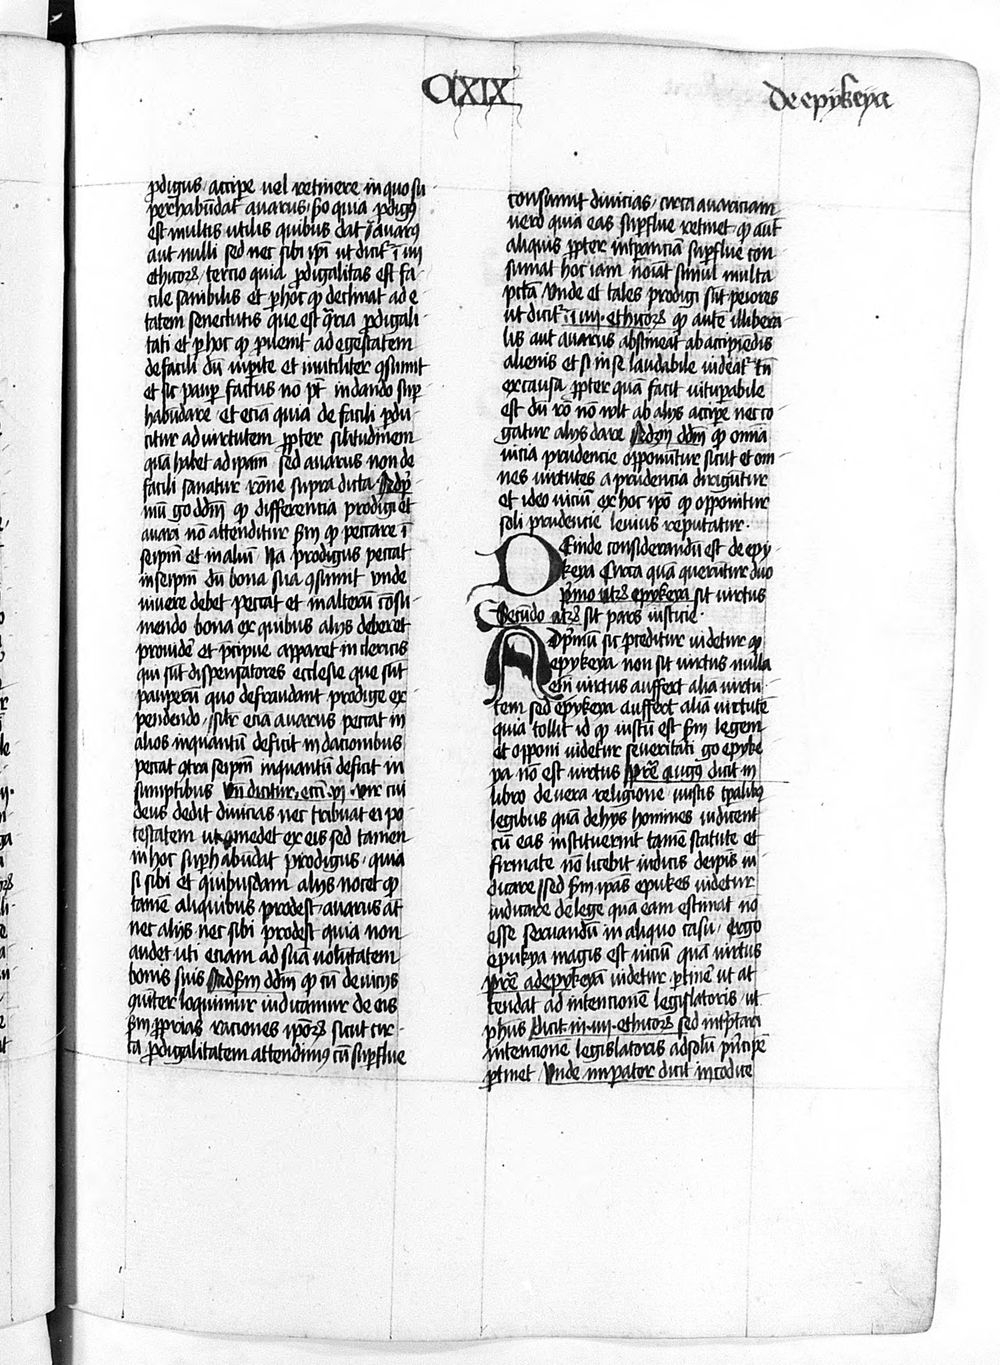 CXIX
De epykeya
p̱digus, accipe uel retinere in quo su
perhabūdat auarus, s̄o quia p̱digꝰ
est multis utilis quibus dat, auarꝰ
aut nulli sed nec sibi ip̄i ut dicit᷑ ī iiij
ethicoꝝ, tercio quia p̱digalitas est fa
cile sanibilis et ꝑ hoc ꝙ declinat ad e
tatem senectutis que est ꝯ̄ria p̱digali
tati et ꝑ hoc ꝙ ꝑuenit ad egestatem
de facili dū multa et inutiliter ꝯsumit
et sic paupꝰ factus nō pt̄ in dando suꝑ
habūdare, et ecia quia de facili ꝑdu
citur ad uirtutem ꝓpter silitudinem
quā habet ad ipam̄ sed auarus non de
facili sanatur rōne supra dicta, Ad pͥ
mū go dd̄m ꝙ differencia prodigi et
auari nō attenditur s̄m ꝙ peccare ī
seip̄m et in aliū Na prodigus peccat
in seip̄m dū bona sua ꝯsumit vnde
uiuere debet peccat et in alterū cōsu
mendo bona ex quibus alijs deberet
prouidē et p̄cipue apparet in clericis
qui sūt dispensatores ecclesie que sūt
pauperū quos defraudant prodige ex
pendendo, silr ecia auarus peccat in
alios inquantū deficit in dacionibus
peccat ꝯtra seip̄m inquantū deficit in
sumptibus vn̄ dicitur ecci. vj. vir cui
deus dedit diuicias nec tribuat ei po
testatem ut comedet ex eis sed tamen
in hoc suꝑhabūdat prodigus, quia
si sibi et quibusdam alijs nocet ꝙ
tamē aliquibus prodest, auarus at̄
nec alijs nec sibi prodest quia non
audet uti eciam ad suā uolūtatem
bonis suis Ad s̄m dd̄m ꝙ cū de uicijs
quiter loquimur iudicamur de eis
s̄m ꝓprias raciones ipoꝝ sicut cir
ca p̱digalitatem attendimꝰ cū suꝑflue
consumit diuicias, circa auariciam
uero quia eas suꝑflue retinet, ꝙ aut̄
aliquis ꝓpter intp̄anciā suꝑflue con
sumat hoc iam noīat simul multa
pctā, Vnde et tales prodigi sūt peiores
ut dicit᷑ ī iiij. ethicoꝝ ꝙ autē illibera
lis aut auarus abstineat ab accipiēdis
alienis et si in se laudabile uideat᷑ tn̄
ex causa ꝓpter quā facit vituꝑabile
est dū iō nō vult ab alijs accipe ne co
gatur alijs dare Ad 3m dd̄m ꝙ omīa
uicia prudencie opponūtur sicut et om
nes uirtutes a prudencia dirigūtur
et ideo uiciū ex hoc ip̄o ꝙ opponitur
soli prudencie leuius reputatur.
Deinde considerandū est de epy
keya Circa quā querūtur duo
Pͥmo utꝝ epykeya sit uirtus
Secūdo utꝝ sit pars iusticie.
Ad pͥmū sic ꝓceditur uidetur ꝙ
epykeya non sit uirtus nulla
em̄ uirtus auffert aliā uirtu
tem sed epykeya auffert aliā uirtutē
quia tollit id ꝙ iustū est s̄m legem
et opponi uidetur seueritati go epyke
ya nō est uirtus P̄tre᷑ augꝰ dicit in
libro de uera religione, in istis tꝑalibꝫ
legibus quā de hijs homines iudicent
cū eas instituerint tamē statute et
firmate nō licebit iudicis de ip̄is iu
dicare sed s̄m ip̄as epykes uidetur
iudicare de lege qua eam estimat nō
esse seruandū in aliquo casu, ergo
epykya magis est uiciū quā uirtus
P̄tre᷑ ad epykeyā uidetur ꝑtinē ut at
tendat ad intentionē legislatoris, ut
ph̄us dicit in .iiij. ethicoꝝ sed intp̄tari
intencionē legislatoris ad solū pͥncipē
ꝑtinet, Vnde imperator dicit in codice